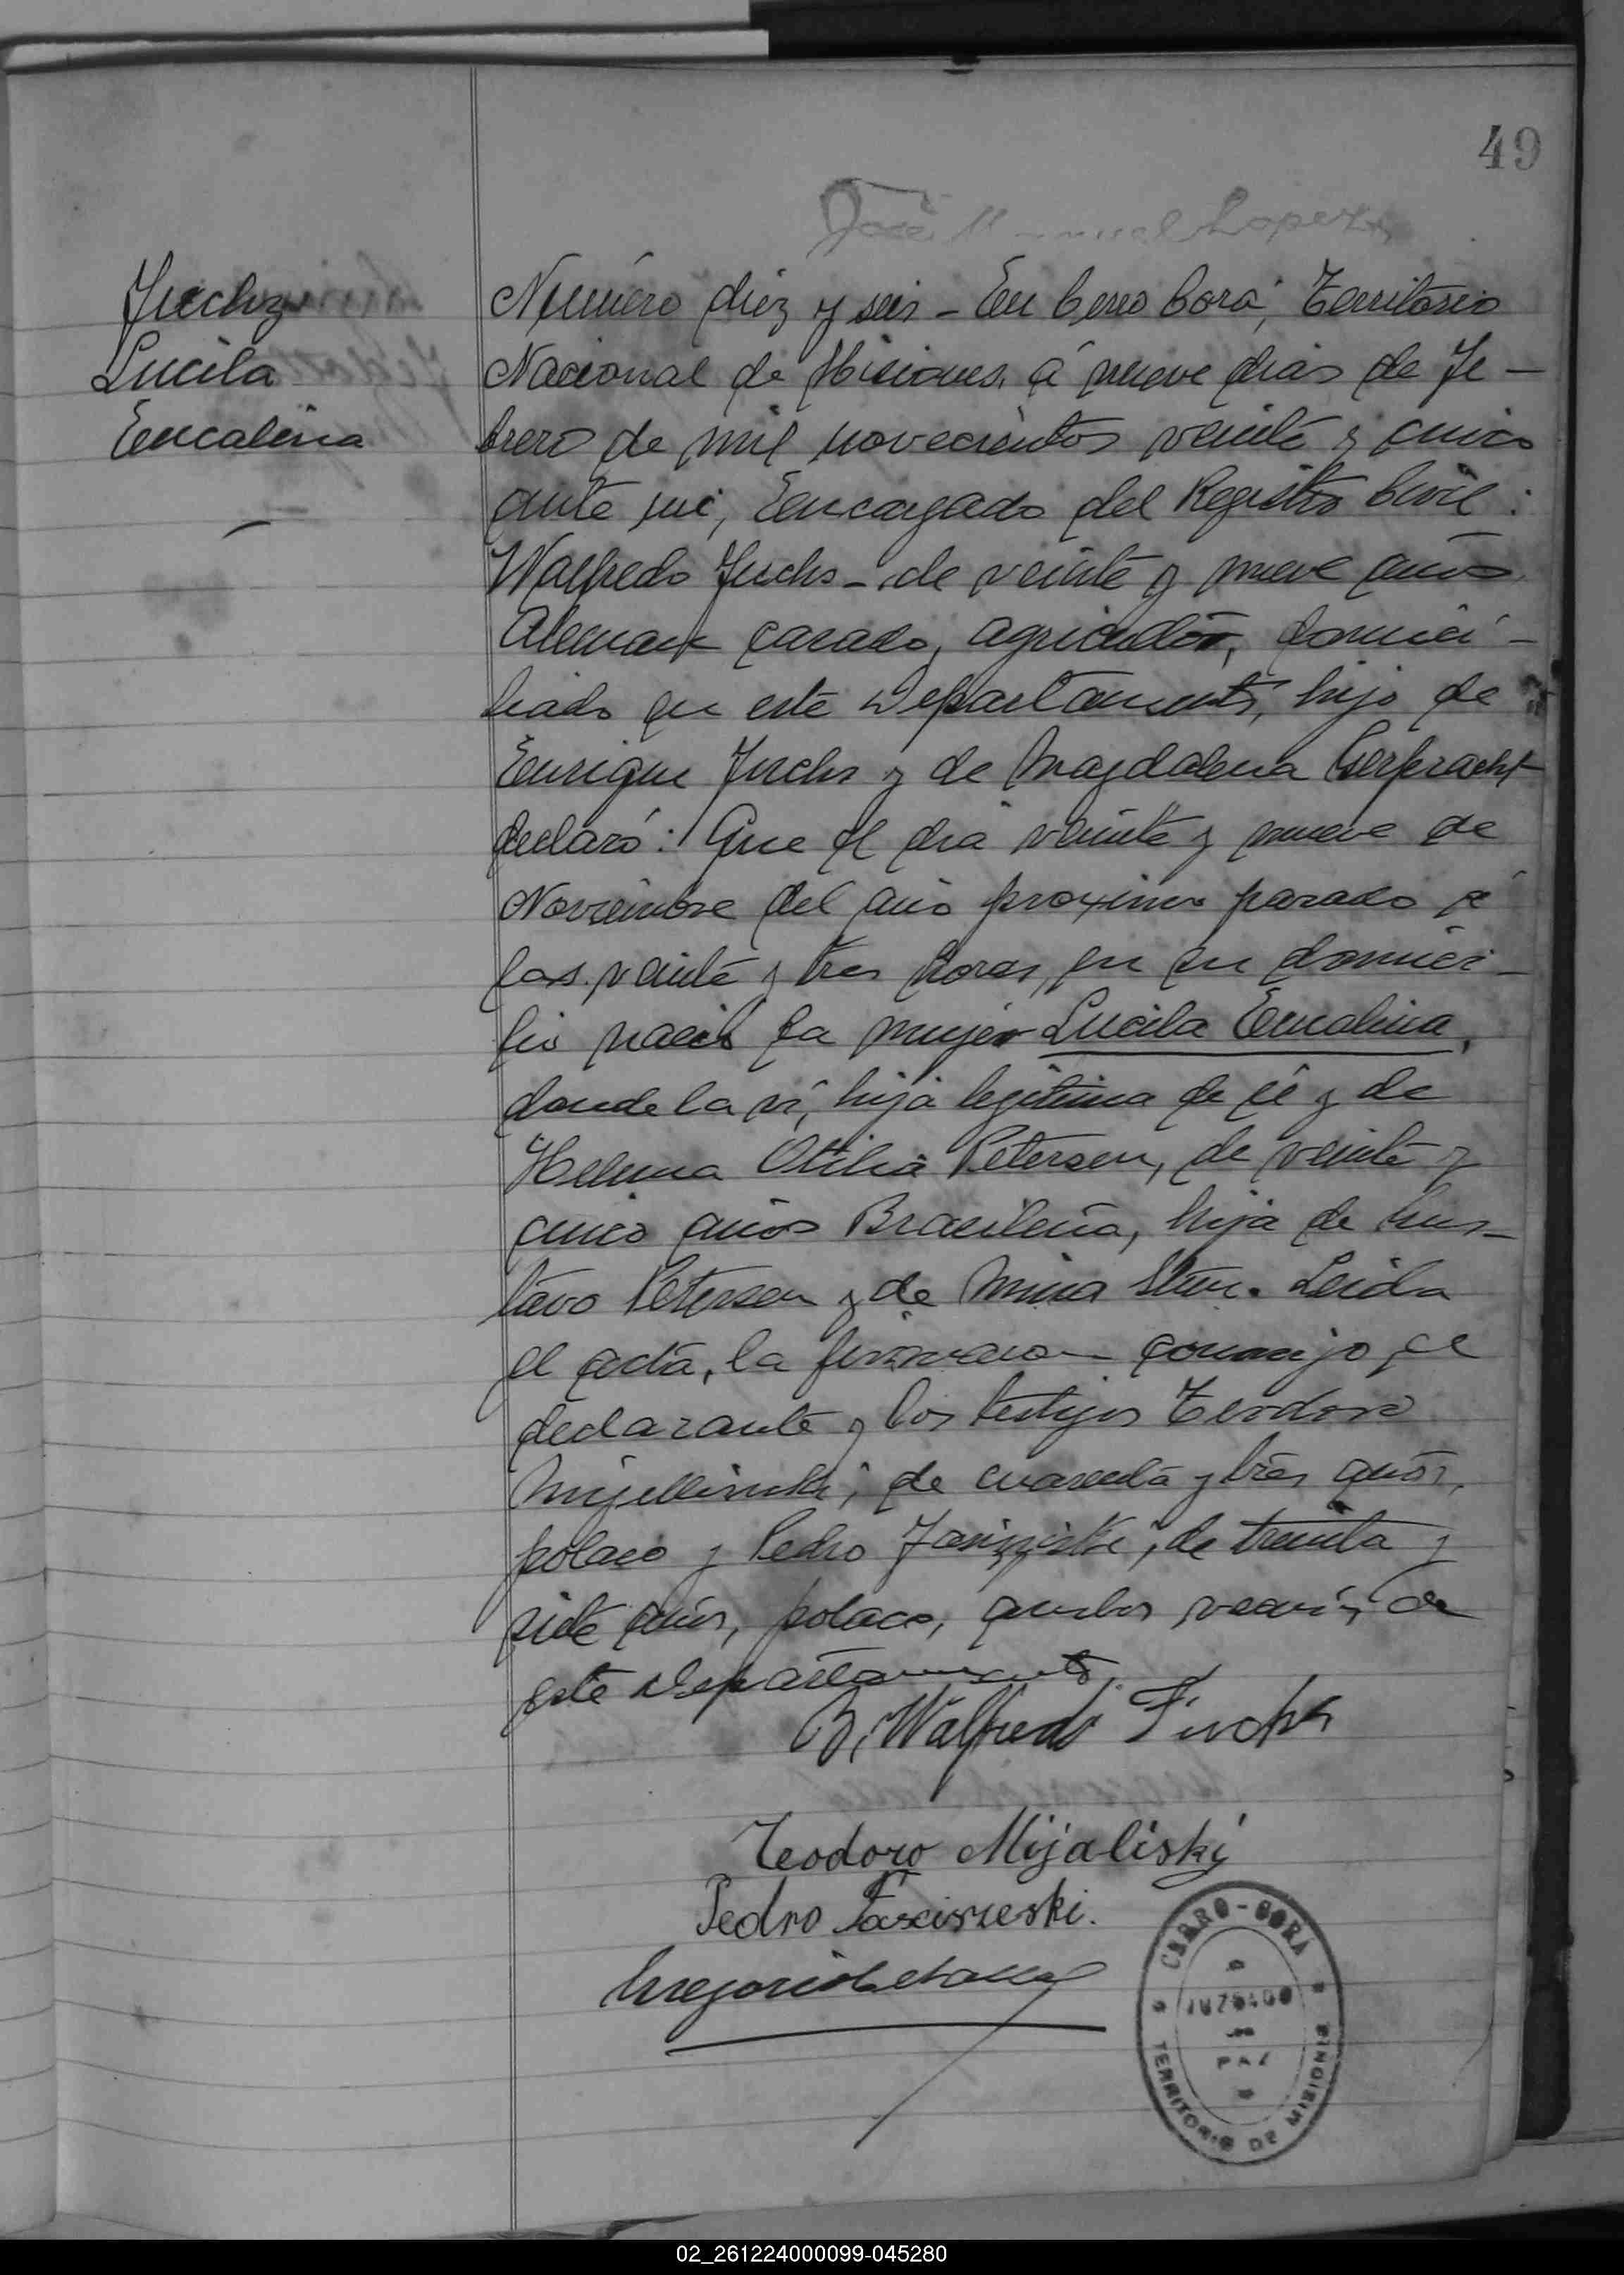 49
José Manuel Lopez
Fuchs
Lucila
Encalina
Número diez y seis - En Cerro Corá, Territorio
Nacional de Misiones, á nueve dias de Fe-
brero de mil novecientos veinte y cinco
ante mi, Encargado del Registro Civil:
Walfredo Fuchs - de veinte y nueve años
Aleman casado, agricultor, domici-
liado en este Departamento, hijo de
Enrique Fuchs y de Magdalena
declaró: Que el dia veinte y nueve de
Noviembre del año proximo pasado á
las veinte y tres horas, en su domici-
lio nació la mujer Lucila Encalina,
donde la ví, hija legitima de él y de
Helema Otilia Petersen, de veinte y
cinco años Brasileña, hija de Gus-
tavo Petersen y de Mina. Leida
el acta, la firmaron conmigo, el
declarante y los testigos Teodoro
de cuarenta y tres años,
polaco y Pedro, de treinta y
siete años, polaco, ambos vecinos de
este Departamento.
B. Walfredo Fuchs
Teodoro Mijaliski
Pedro
Gregorio
CERRO-CORÁ
JUZGADO
DE
PAZ
TERRITORIO DE MISIONES
02_261224000099-045280